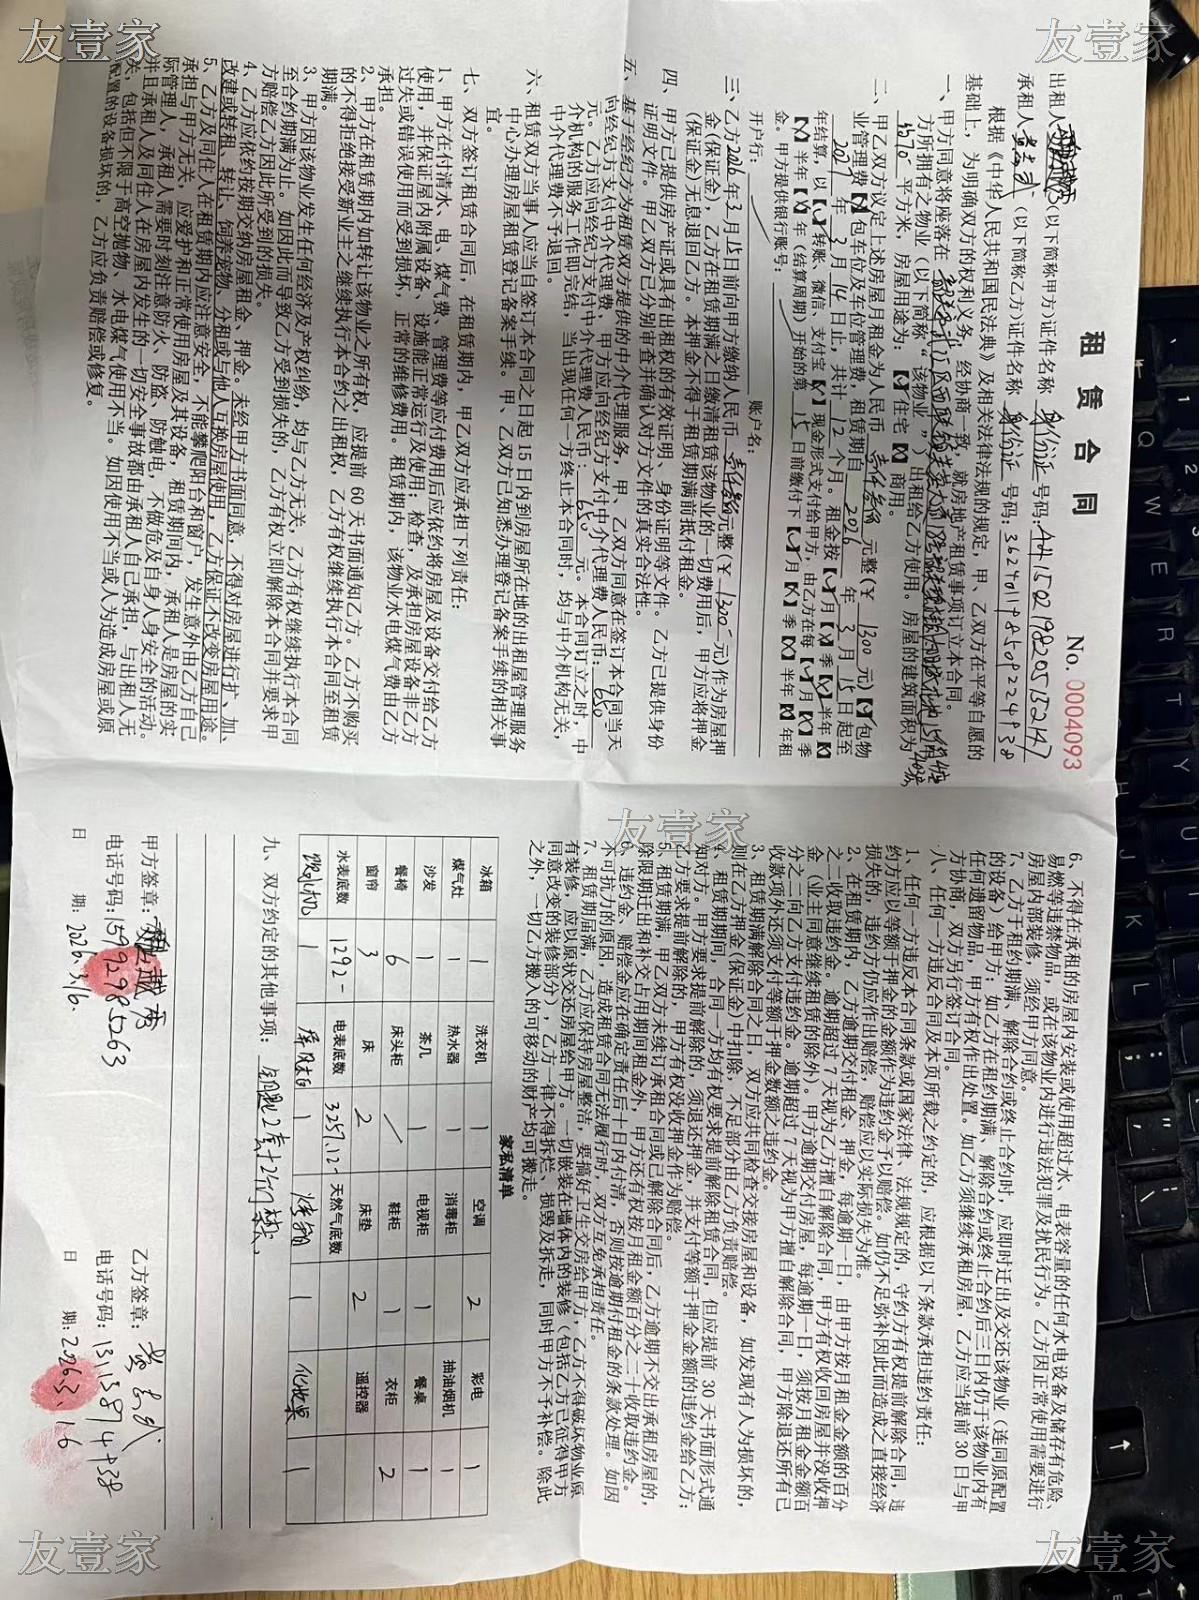 友壹家
友壹家
友壹家
友壹家
友壹家
租 赁 合 同
No. 0004093
出租人 (以下简称甲方)证件名称 身份证 号码:
承租人 (以下简称乙方)证件名称 身份证 号码:
根据《中华人民共和国民法典》及相关法律法规的规定,甲、乙双方在平等自愿的
基础上,为明确双方的权利义务,经协商一致,就房地产租赁事项订立本合同。
一、甲方同意将座落在
方所拥有之物业(以下简称“该物业”)出租给乙方使用。房屋的建筑面积为
约70 平方米,房屋用途为:【✓】住宅【×】商用。
二、甲乙双方议定上述房屋月租金为人民币 壹仟叁佰 元整(¥ 1300 元)【✓】包物
业管理费【×】包车位及车位管理费,租赁期自 2026 年 3 月 15 日起至
2027 年 3 月 14 日止,共计 12 个月。租金按【✓】月【×】季【×】半年【×】
年结算,以【✓】转账、微信、支付宝【×】现金形式支付给甲方,由乙方在每【✓】月【×】季
【×】半年【×】年(结算周期)开始的第 15 日前缴付下【✓】月【×】季【×】半年【×】年租
金。甲方提供银行账号:
开户行: 账户名:
三、乙方2026年3月15日前向甲方缴纳人民币 壹仟叁佰 元整(¥ 1300 元)作为房屋押
金(保证金),乙方在租赁期满之日缴清租赁该物业的一切费用后,甲方应将押金
(保证金)无息退回乙方。本押金不得于租赁期满前抵付租金。
四、甲方已提供房产证或具有出租权的有效证明、身份证明等文件。乙方已提供身份
证明文件。甲乙双方已分别审查并确认对方文件的真实合法性。
五、基于经纪方为租赁双方提供的中介代理服务,甲、乙双方同意在签订本合同当天
向经纪方支付中介代理费,甲方应向经纪方支付中介代理费人民币: 650
元。乙方应向经纪方支付中介代理费人民币: 650 元。本合同订立之时,中
介机构的服务工作即完结,当出现任何一方终止本合同时,均与中介机构无关,
中介代理费用不予退回。
六、租赁双方当事人应当自签订本合同之日起 15 日内到房屋所在地的出租屋管理服务
中心办理房屋租赁登记备案手续。甲、乙双方已知悉办理登记备案手续的相关事
宜。
七、双方签订租赁合同后,在租赁期内,甲乙双方应承担下列责任:
1、甲方在付清水、电、煤气费、管理费等应付费用后应依约将房屋及设备交付给乙方
使用,并保证屋内附属设备、设施能正常运行及使用;检查,及承担房屋设备非乙方
过失或错误使用而受到损坏,正常的维修费用。租赁期内,该物业水电煤气费由乙方
承担。
2、甲方在租赁期内如转让该物业之所有权,应提前 60 天书面通知乙方。乙方不购买
的不得拒绝接受新业主之继续执行本合约之出租权,乙方有权继续执行本合同至租赁
期满。
3、甲方因该物业发生任何经济及产权纠纷,均与乙方无关,乙方有权继续执行本合同
至合约期满为止。如因此而导致乙方受到损失的,乙方有权立即解除本合同并要求甲
方赔偿乙方因此所受到的损失。
4、乙方应依约按期交纳房屋租金、押金。未经甲方书面同意,不得对房屋进行扩、加、
改建或转租、转让、饲养宠物、分租或与他人互换房屋使用,乙方保证不改变房屋用途。
5、乙方及同住人在租赁期内应注意安全,不能攀爬阳台和窗户,发生意外由乙方自己
承担与甲方无关,应爱护和正常使用房屋及其设备,租赁期间内,承租人是房屋的实
际管理人,承租人需要时刻注意防火、防盗、防触电,不做危及自身人身安全的活动。
并且承租人及同住人在房屋内发生的一切安全事故都由承租人自己承担,与出租人无
关,包括但不限于高空抛物、水电煤气使用不当。如因使用不当或人为造成房屋或原
配置的设备损坏的,乙方应负责赔偿或修复。
6、不得在承租的房屋内安装或使用超过水、电表容量的任何水电设备及储存有危险、
易燃等违禁物品,或在该物业内进行违法犯罪及扰民行为。乙方因正常使用需要进行
房屋内部装修,须经甲方同意。
7、乙方于租约期满、解除合约或终止合约时,应即时迁出及交还该物业(连同原配置
的设备)给甲方;如乙方在租约期满、解除合约或终止合约后三日内仍于该物业内有
任何遗留物品,甲方有权作出处置。如乙方须继续承租房屋,乙方应当提前 30 日与甲
方协商,双方另行签订合同。
八、任何一方违反合同及本页所载之约定的,应根据以下条款承担违约责任:
1、任何一方违反本合同条款或国家法律、法规规定的,守约方有权提前解除合同,违
约方应以等额于押金的金额作为违约金予以赔偿。如仍不足弥补因此而造成之直接经济
损失的,违约方仍应作出赔偿,赔偿应以实际损失为准。
2、在租赁期内,乙方逾期交付租金、押金,每逾期一日,由甲方按月租金金额的百分
之二收取违约金。逾期超过 7 天视为乙方擅自解除合同,甲方有权收回房屋并没收押
金(业主同意继续租赁的除外)。甲方逾期交付房屋,每逾期一日,须按月租金金额百
分之二向乙方支付违约金。逾期超过 7 天视为甲方擅自解除合同,甲方除退还所有已
收款项外还须支付等额于押金数额之违约金。
3、租赁期满解除合同之日,双方应共同检查交接房屋和设备,如发现有人为损坏的,
则在乙方押金(保证金)中扣除,不足部分由乙方负责赔偿。
4、租赁期期间,合同一方均有权要求提前解除租赁合同,但应提前 30 天书面形式通
知对方。甲方要求提前解除的,须退还押金,并支付等额于押金金额的违约金给乙方;
乙方要求提前解除的,甲方有权没收押金作为赔偿。
5、租赁期满,甲乙双方未续订承租合同或已解除合同后,乙方逾期不交出承租房屋的,
除限期迁出和补交占用期间租金外,甲方还有权按月租金额百分之二十收取违约金。
6、违约金、赔偿金应在确定责任后十日内付清,否则按逾期付租金的条款处理。如因
不可抗力的原因,造成租赁合同无法履行时,双方互免承担责任。
7、租赁期届满,乙方应保持房屋整洁,要搞好卫生交房给甲方,乙方不得破坏物业原
有装修,应以原状交还房屋给甲方。一切嵌装在墙体内的装修(包括乙方已征得甲方
同意改变的装修部分),乙方一律不得拆烂、损毁及拆走,同时甲方不予补偿。除此
之外,一切乙方搬入的可移动的财产均可搬走。
家私清单
冰箱 1 洗衣机 1 空调 2 彩电 1
煤气灶 1 热水器 1 消毒柜 抽油烟机 1
沙发 1 茶几 1 电视柜 1 餐桌 1
餐椅 6 床头柜 / 鞋柜 1 衣柜 2
窗帘 3 床 2 床垫 2 遥控器
水表底数 1292- 电表底数 33571.2- 天然气底数
1 1 1 化妆桌 1
九、双方约定的其他事项:
甲方签章:
电话号码: 15992985263
日 期: 2026.3.16.
乙方签章:
电话号码: 13113874938
日 期: 2026.3.16